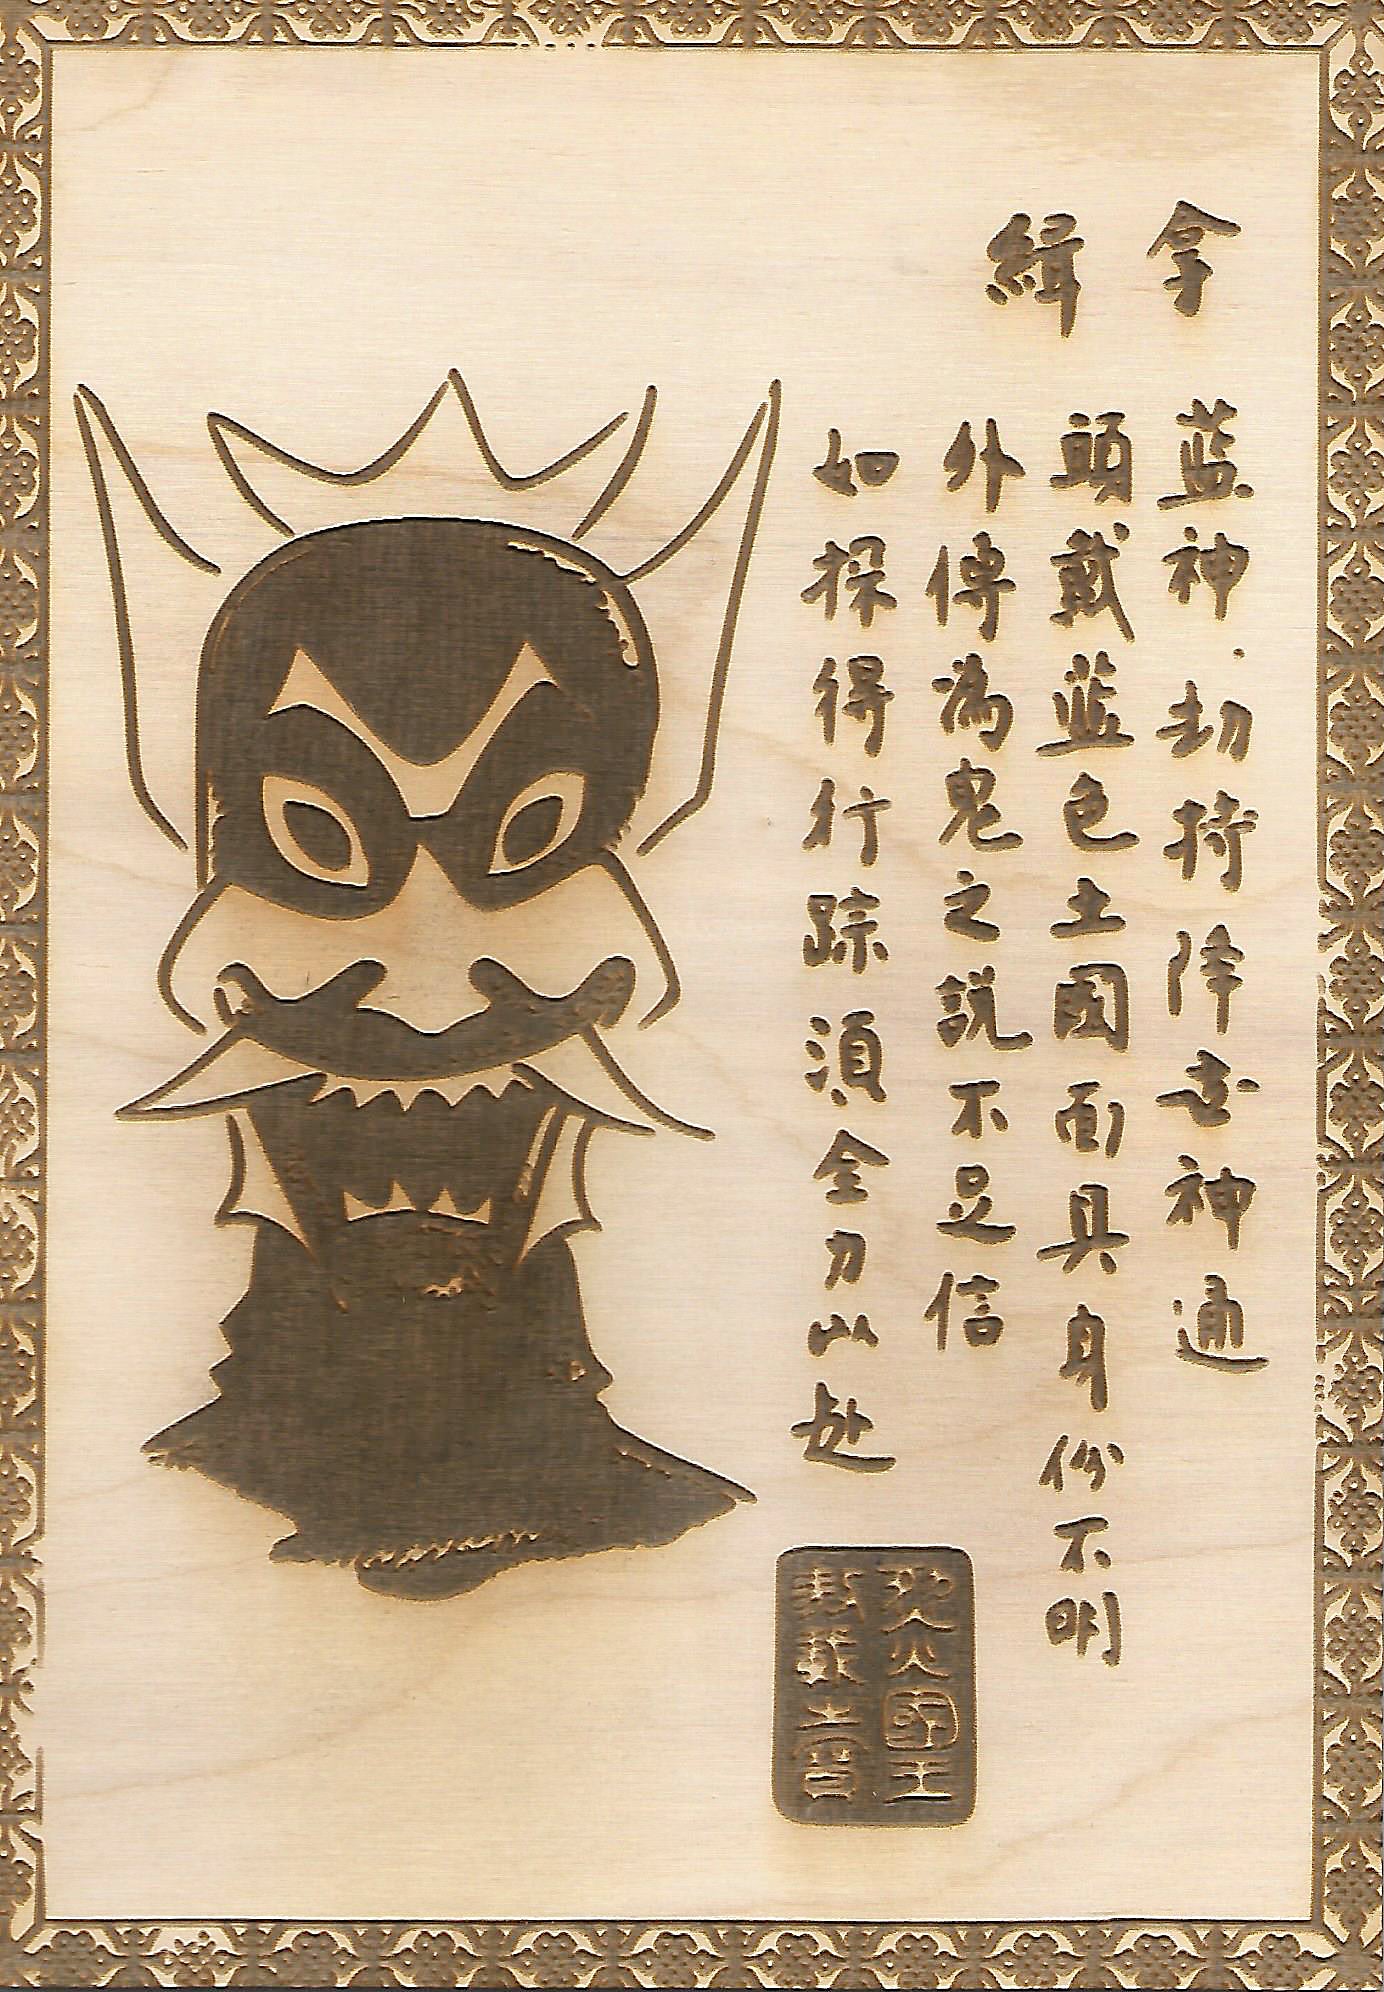 緝拿
蓝神·劫持降世神通
頭戴蓝色土國面具身份不明
外傳為鬼之說不足信
如探得行踪須全力以赴
火國王